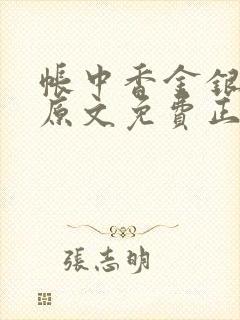 帳中香金銀
原文免費正
張志明